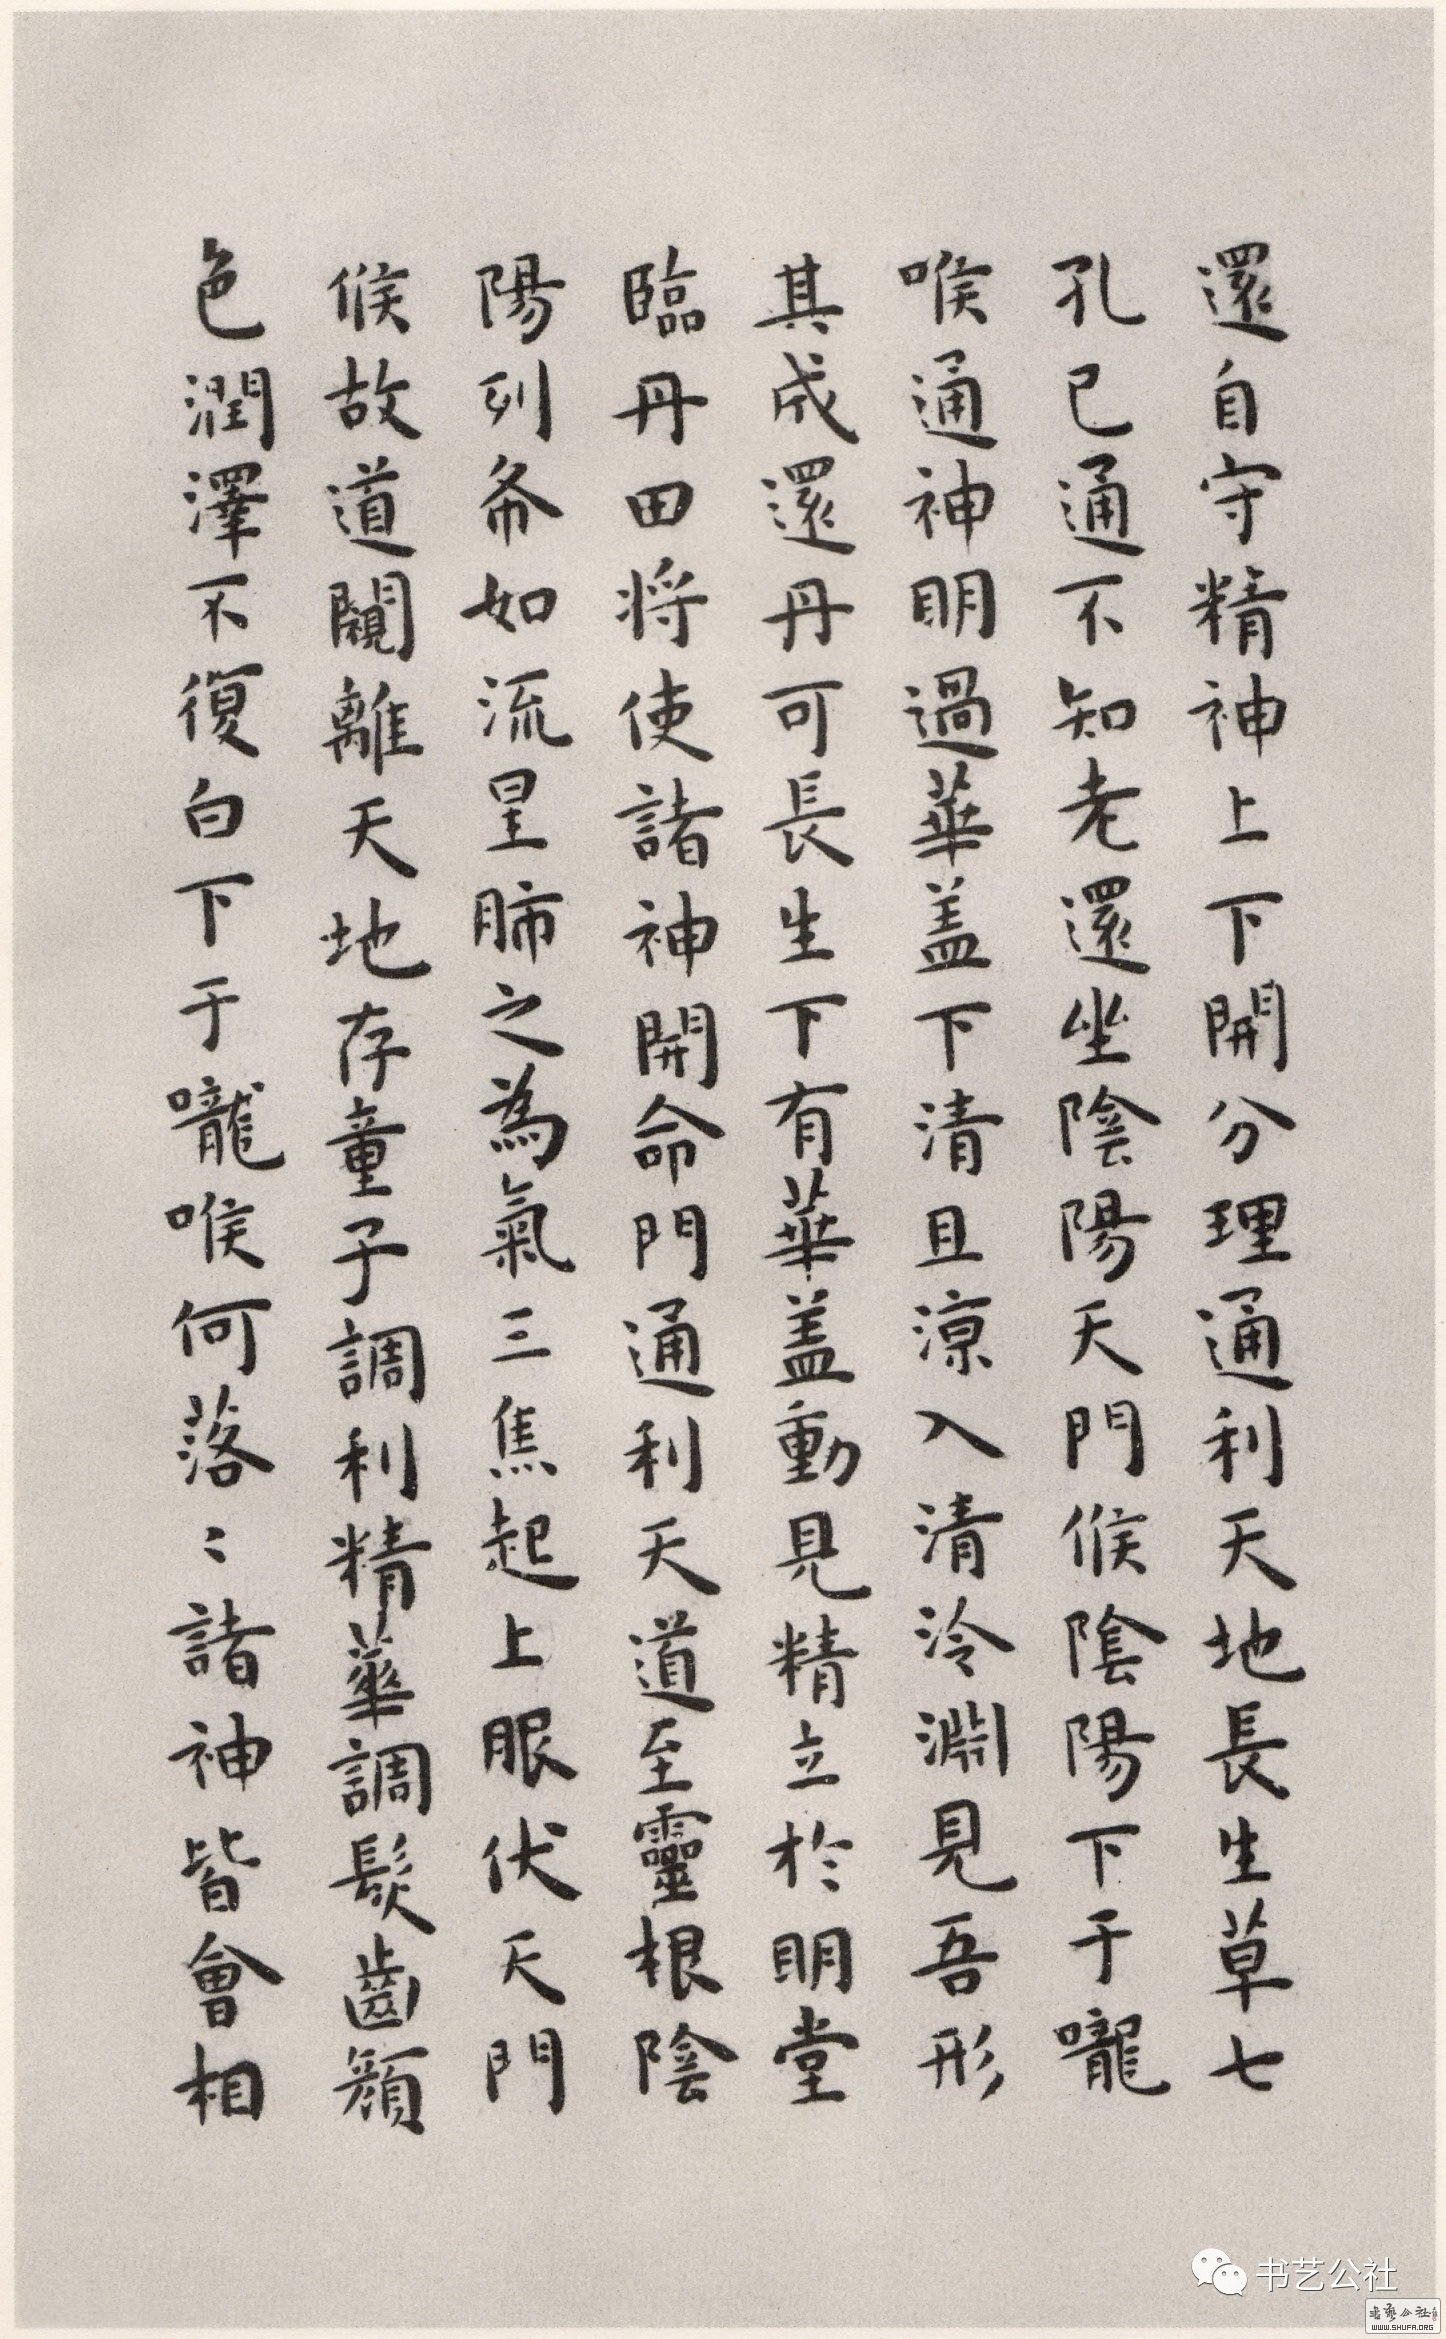 還自守精神上下開分理通利天地長生草七
孔已通不知老還坐陰陽天門候陰陽下于嚨
喉通神明過華蓋下清且涼入清泠淵見吾形
其成還丹可長生下有華蓋動見精立於明堂
臨丹田将使諸神開命門通利天道至靈根陰
陽列布如流星肺之為氣三焦起上服伏天門
候故道闚離天地存童子調利精華調髮齒顏
色潤澤不復白下于嚨喉何落〻諸神皆會相
书艺公社
WWW.SHUFA.ORG